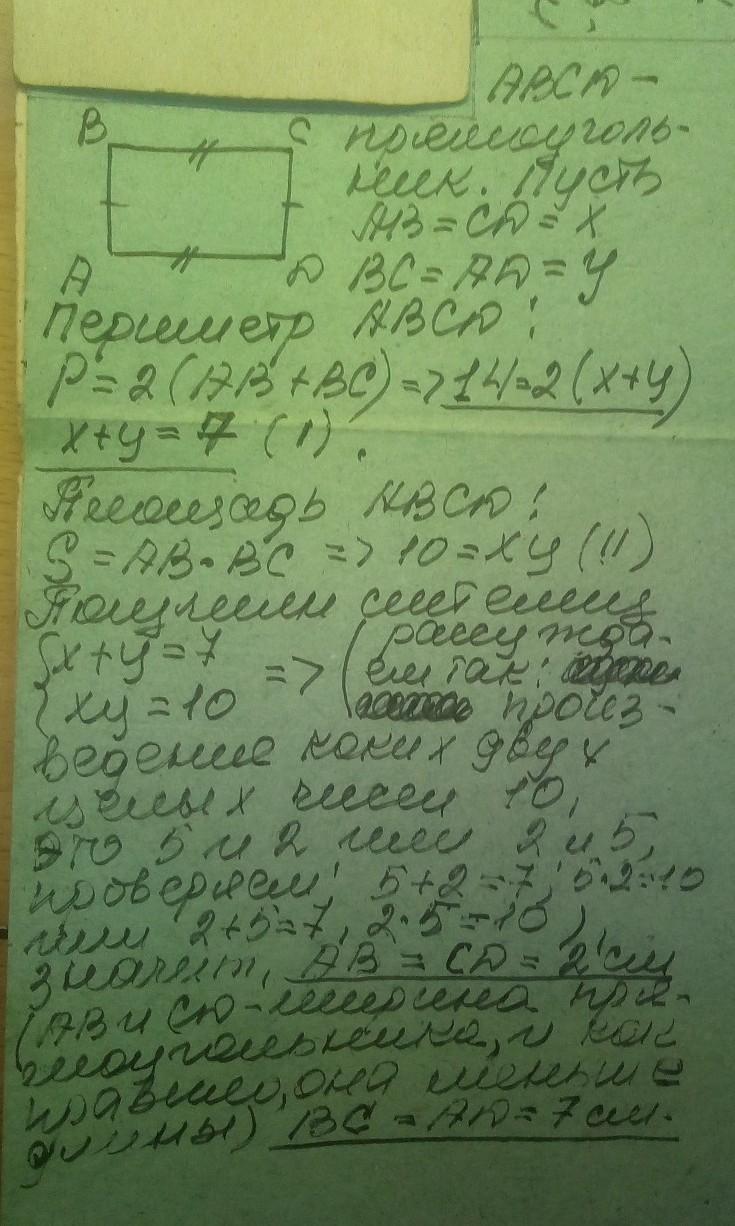 ABCD –
B C прямоуголь-
ник. Пусть
AB = CD = x
A D BC = AD = y
Периметр ABCD:
P = 2(AB+BC) => 14=2(x+y)
x+y = 7 (I).
Площадь ABCD:
S = AB·BC => 10 = xy (II)
Получили систему
{x+y=7 (рассужда-
=> ем так:
{xy=10 произ-
ведение каких двух
целых чисел 10,
это 5 и 2 или 2 и 5,
проверяем: 5+2=7; 5·2=10
или 2+5=7, 2·5=10),
значит, AB = CD = 2 см
(AB и CD – ширина пря-
моугольника, и как
правило, она меньше
длины) BC = AD = 7 см.